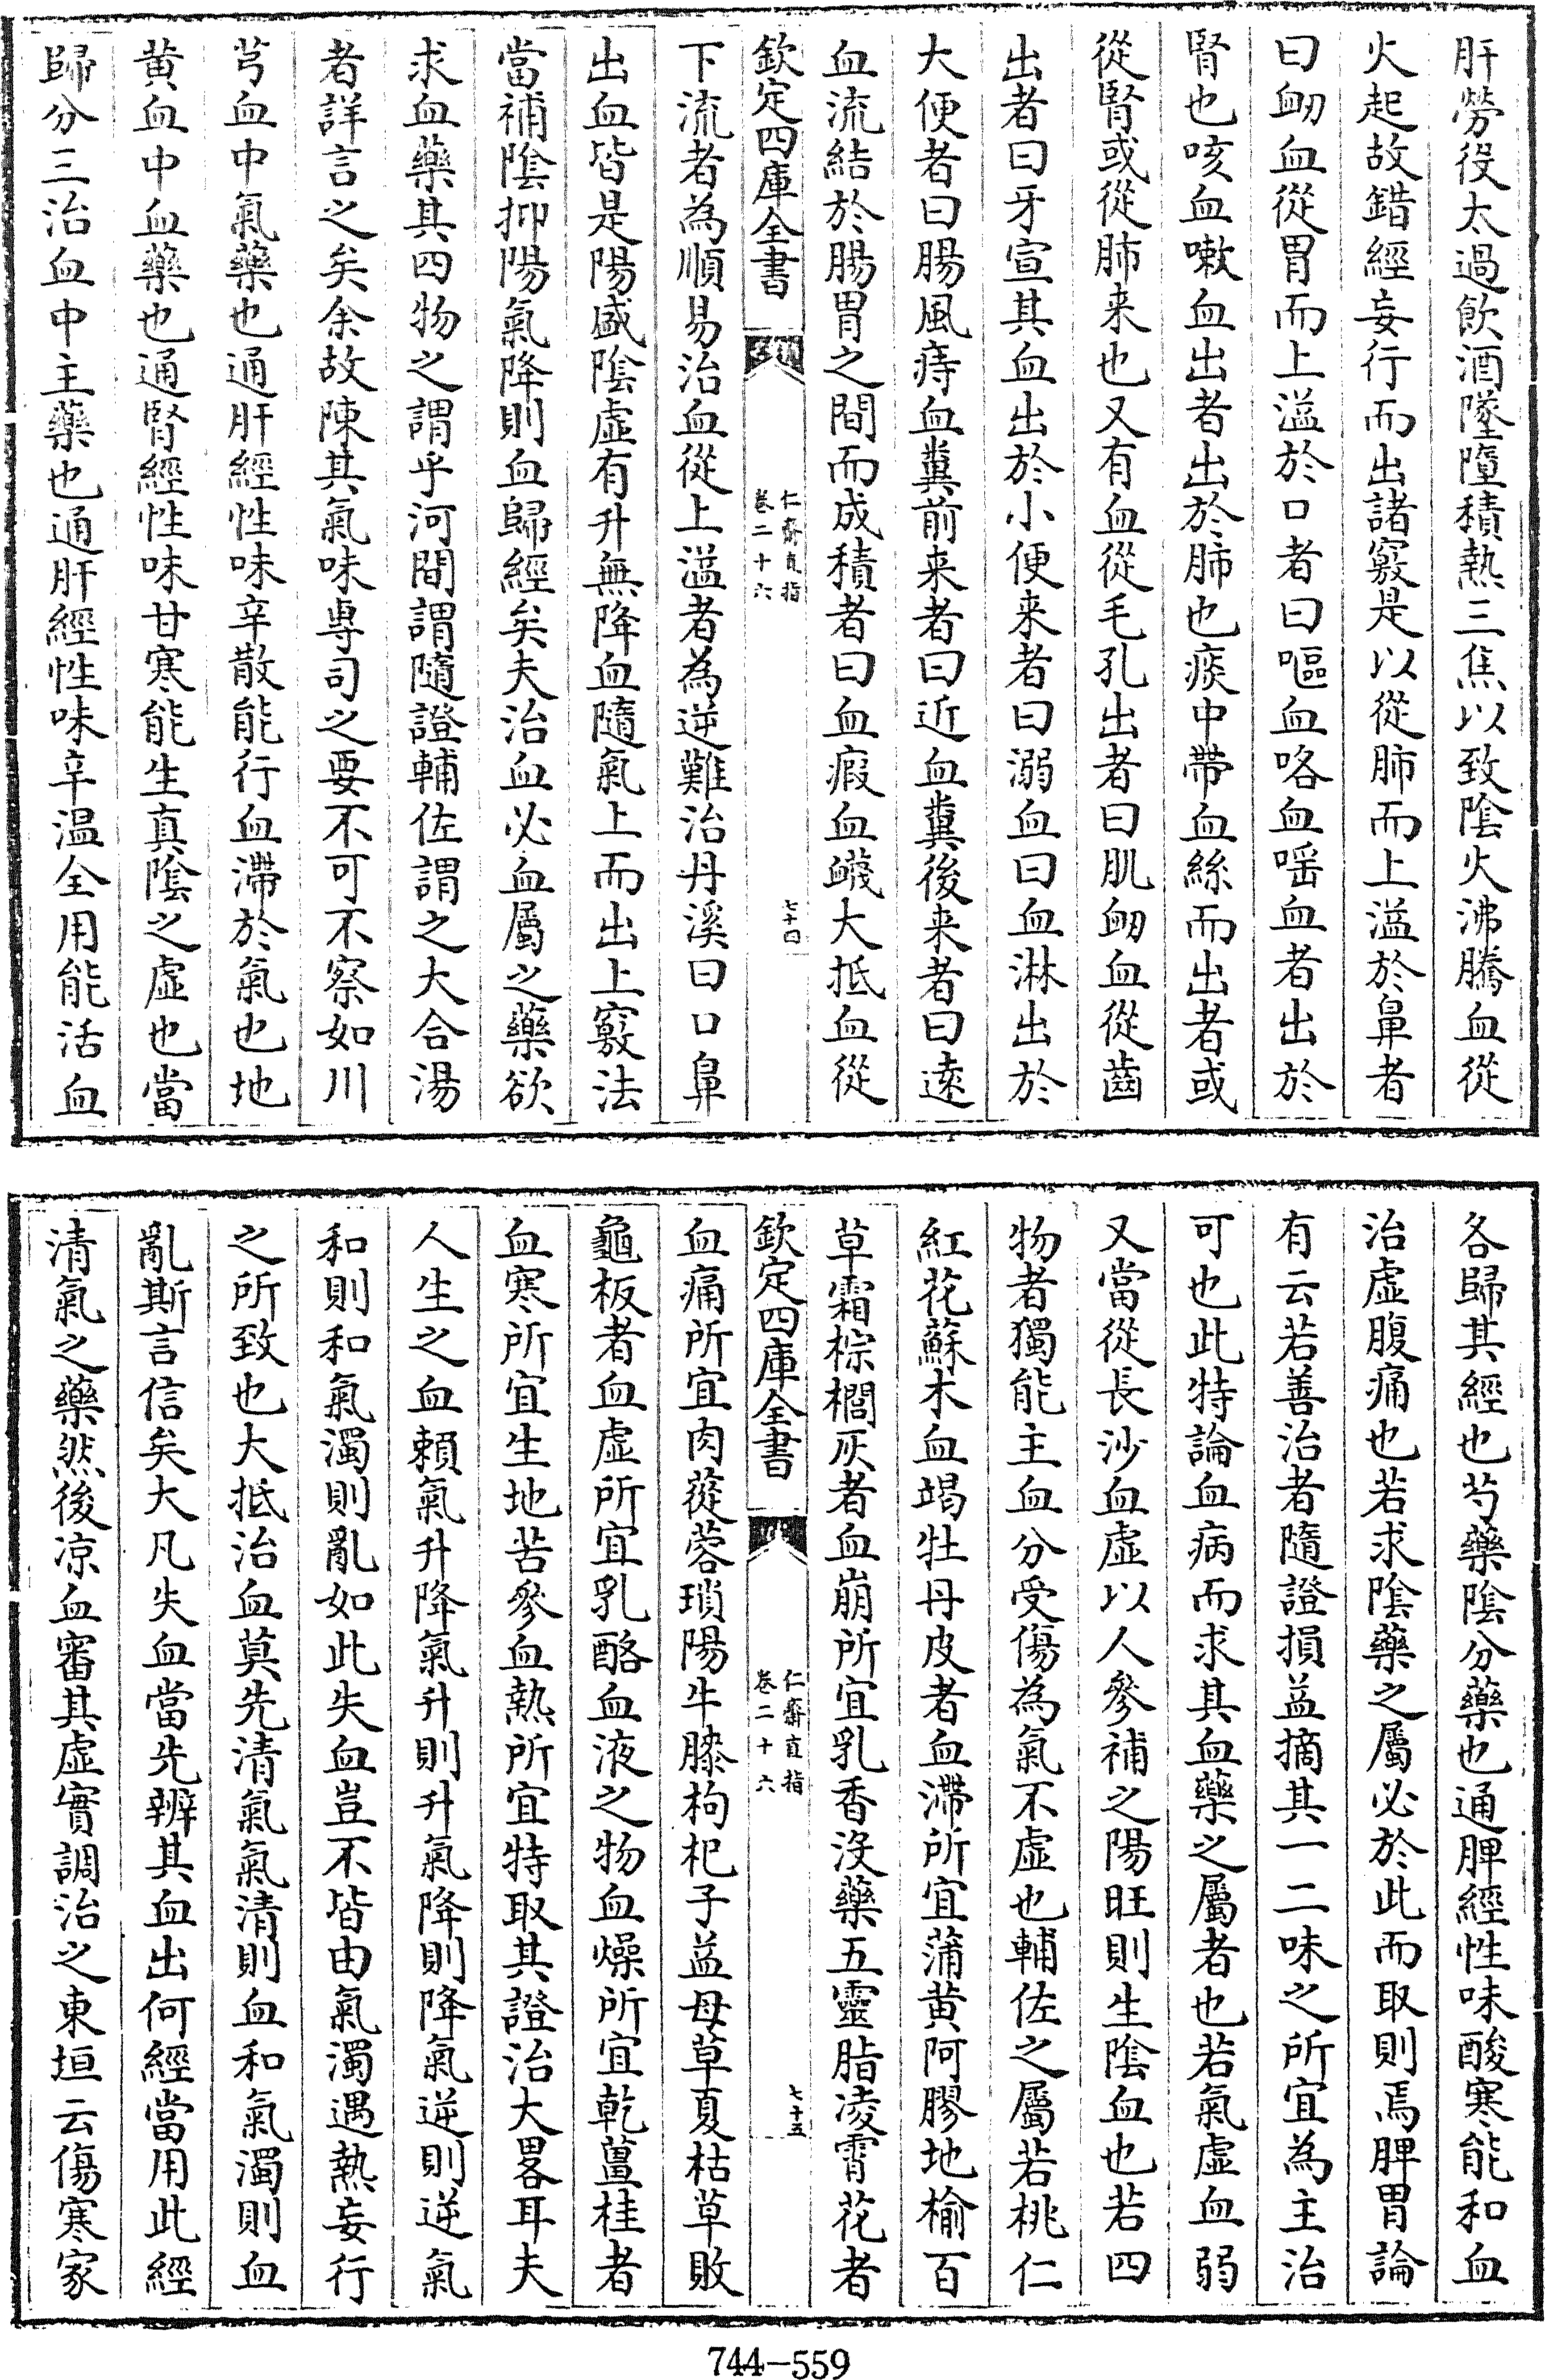 肝勞役太過飲酒墜墮積熱三焦以致陰火沸騰血從
火起故錯經妄行而出諸竅是以從肺而上溢於鼻者
曰衂血從胃而上溢於口者曰嘔血咯血唾血者出於
腎也咳血嗽血出者出於肺也痰中帶血絲而出者或
從腎或從肺来也又有血從毛孔出者曰肌衂血從齒
出者曰牙宣其血出於小便来者曰溺血曰血淋出於
大便者曰腸風痔血糞前来者曰近血糞後来者曰遠
血流結於腸胃之間而成積者曰血瘕血衊大抵血從
欽定四庫全書
仁齋直指
卷二十六
七十四
下流者為順易治血從上溢者為逆難治丹溪曰口鼻
出血皆是陽盛陰虛有升無降血隨氣上而出上竅法
當補陰抑陽氣降則血歸經矣夫治血必血屬之藥欲
求血藥其四物之謂乎河間謂隨證輔佐謂之大合湯
者詳言之矣余故陳其氣味專司之要不可不察如川
芎血中氣藥也通肝經性味辛散能行血滯於氣也地
黄血中血藥也通腎經性味甘寒能生真陰之虛也當
歸分三治血中主藥也通肝經性味辛温全用能活血
各歸其經也芍藥陰分藥也通脾經性味酸寒能和血
治虛腹痛也若求陰藥之屬必於此而取則焉脾胃論
有云若善治者隨證損益摘其一二味之所宜為主治
可也此特論血病而求其血藥之屬者也若氣虛血弱
又當從長沙血虛以人參補之陽旺則生陰血也若四
物者獨能主血分受傷為氣不虛也輔佐之屬若桃仁
紅花蘇木血竭牡丹皮者血滯所宜蒲黄阿膠地榆百
草霜棕櫚灰者血崩所宜乳香沒藥五靈脂凌霄花者
欽定四庫全書
仁齋直指
卷二十六
七十五
血痛所宜肉蓯蓉瑣陽牛膝枸杞子益母草夏枯草敗
龜板者血虛所宜乳酪血液之物血燥所宜乾薑桂者
血寒所宜生地苦參血熱所宜特取其證治大畧耳夫
人生之血賴氣升降氣升則升氣降則降氣逆則逆氣
和則和氣濁則亂如此失血豈不皆由氣濁遇熱妄行
之所致也大抵治血莫先清氣氣清則血和氣濁則血
亂斯言信矣大凡失血當先辨其血出何經當用此經
清氣之藥然後凉血審其虛實調治之東垣云傷寒家
744-559